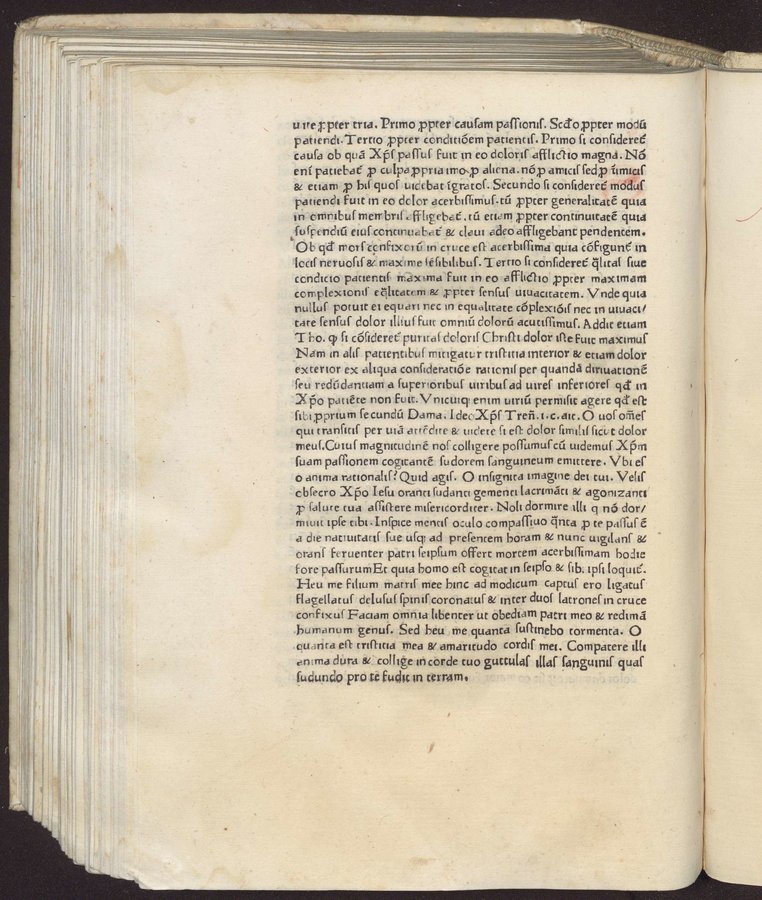 uite ꝓpter tria. Primo ꝓpter causam passionis. Scd̄o ꝓpter modū
patiendi. Tertio ꝓpter conditiōem patientis. Primo si consideret᷑
causa ob quā Xp̄s passus fuit in eo doloris afflictio magna. Nō
eni patiebat᷑ ꝓ culpa ꝓpria imo ꝓ aliena. nō ꝓ amicis sed ꝓ īimicis
& etiam ꝓ his quos uidebat īgratos. Secundo si consideret᷑ modus
patiendi fuit in eo dolor acerbissimus. tū ꝓpter generalitatē quia
in omnibus membris affligebat᷑. tū etiam ꝓpter continuitatē quia
suspendiū eius continuabat᷑ & claui adeo affligebant pendentem.
Ob qd̄ mors cōnfixorū in cruce est acerbissima quia cōfigunt᷑ in
locis neruosis & maxime sēsibilibus. Tertio si consideret᷑ q̄litas siue
condicio patientis maxima fuit in eo afflictio ꝓpter maximam
complexionis eq̄litatem & ꝓpter sensus uiuacitatem. Vnde quia
nullus potuit ei equari nec in equalitate cōplexiōis nec in uiuaci/
tate sensus dolor illius fuit omniū dolorū acutissimus. Addit etiam
Tho. ꝙ si cōsideret᷑ puritas doloris Christi dolor iste fuit maximus
Nam in aliis patientibus mitigatur tristitia interior & etiam dolor
exterior ex aliqua consideratiōe rationis per quandā diriuationē
seu redūdantiam a superioribus uiribus ad uires inferiores qd̄ in
Xp̄o patiēte non fuit. Vnicuiq; enim uiriū permisit agere qd̄ est
sibi ꝓprium secundū Dama. Ideo Xp̄s Treñ. i. c. ait. O uos om̄es
qui transitis per uiā attēdite & uidete si est dolor similis sicut dolor
meus. Cuius magnitudinē nos colligere possumus cū uidemus Xp̄m
suam passionem cogitantē sudorem sanguineum emittere. Vbi es
o anima rationalis? Quid agis. O insignita imagine dei tui. Velis
obsecro Xp̄o Iesu oranti sudanti gementi lacrimāti & agonizanti
ꝓ salute tua assistere misericorditer. Noli dormire illi q nō dor/
miuit ipse tibi. Inspice mentis oculo compassiuo q̄nta ꝓ te passus ē
a die natiuitatis sue usq; ad presentem horam & nunc uigilans &
orans feruenter patri seipsum offert mortem acerbissimam hodie
fore passurum Et quia homo est cogitat in seipso & sibi ipsi loquit᷑.
Heu me filium matris mee hinc ad modicum captus ero ligatus
flagellatus delusus spinis coronatus & inter duos latrones in cruce
confixus Faciam omnia libenter ut obediam patri meo & redimā
humanum genus. Sed heu me quanta sustinebo tormenta. O
quanta est tristitia mea & amaritudo cordis mei. Compatere illi
anima dura & collige in corde tuo guttulas illas sanguinis quas
sudundo pro te fudit in terram.